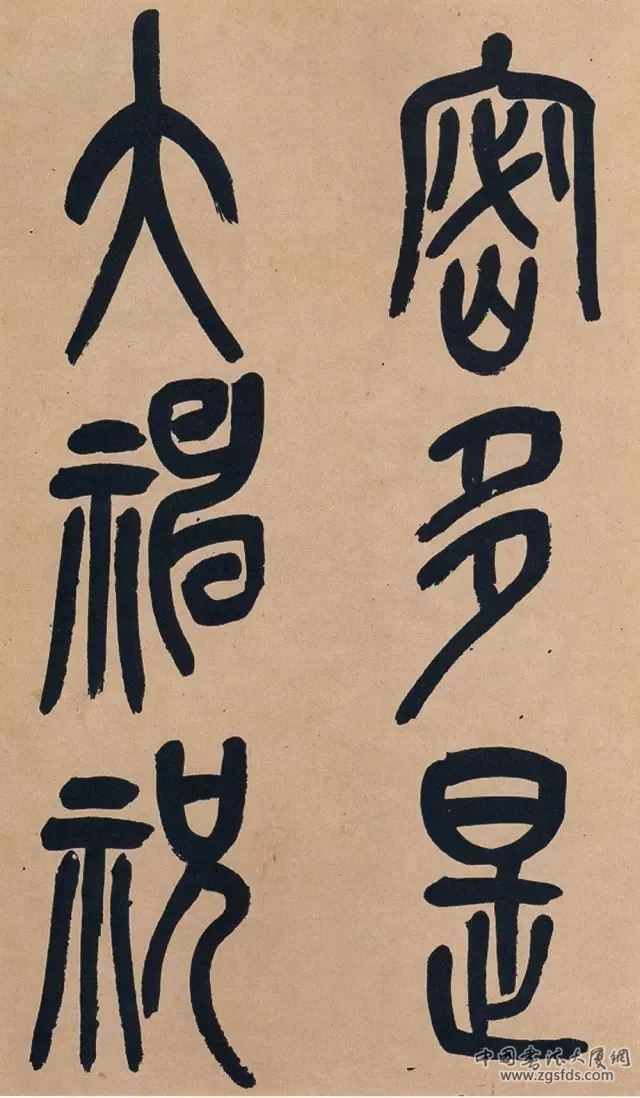 密多是
大神祝
中國書法大厦網
www.zgsfds.com